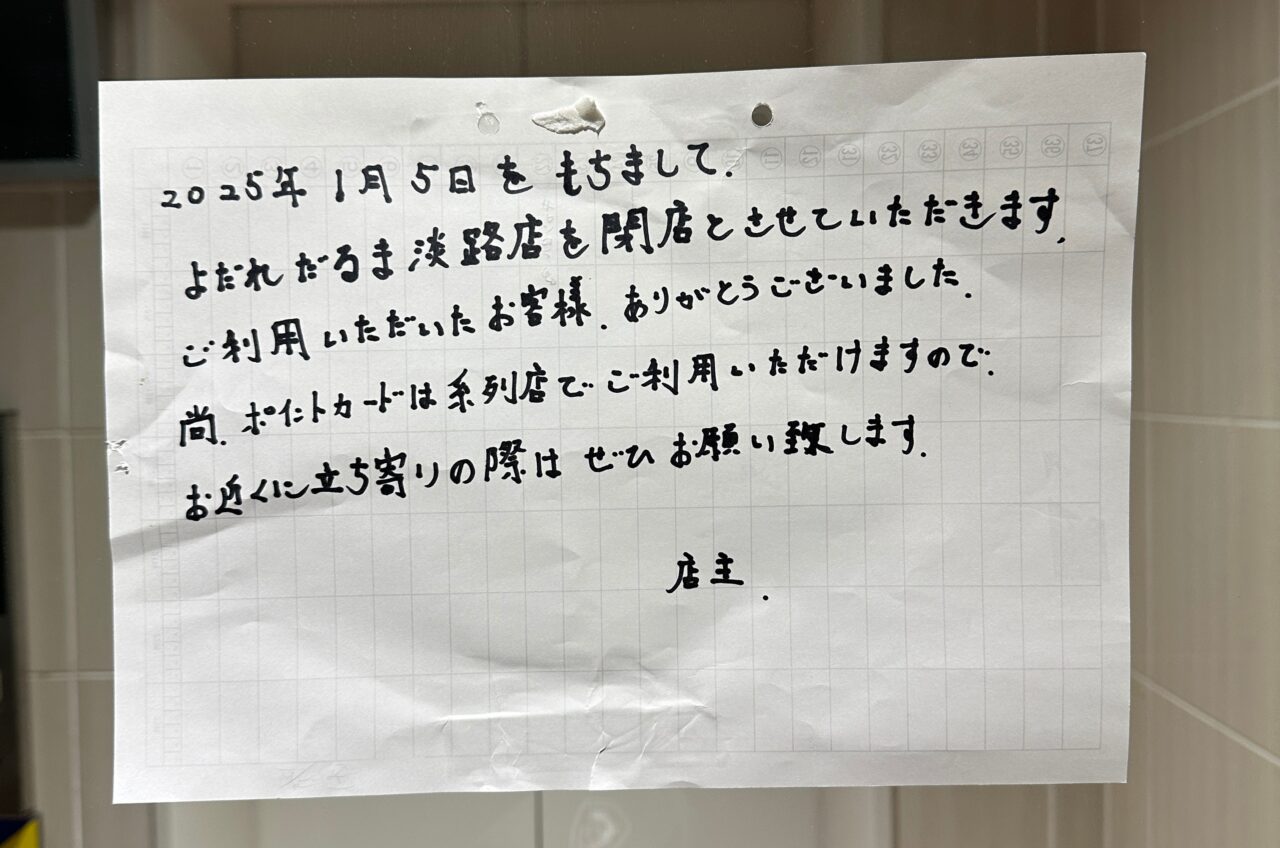 2025年1月5日をもちまして.
よだれだるま淡路店を閉店とさせていただきます.
ご利用いただいたお客様.ありがとうございました.
尚.ポイントカードは系列店でご利用いただけますので.
お近くに立ち寄りの際はぜひお願い致します.
店主.